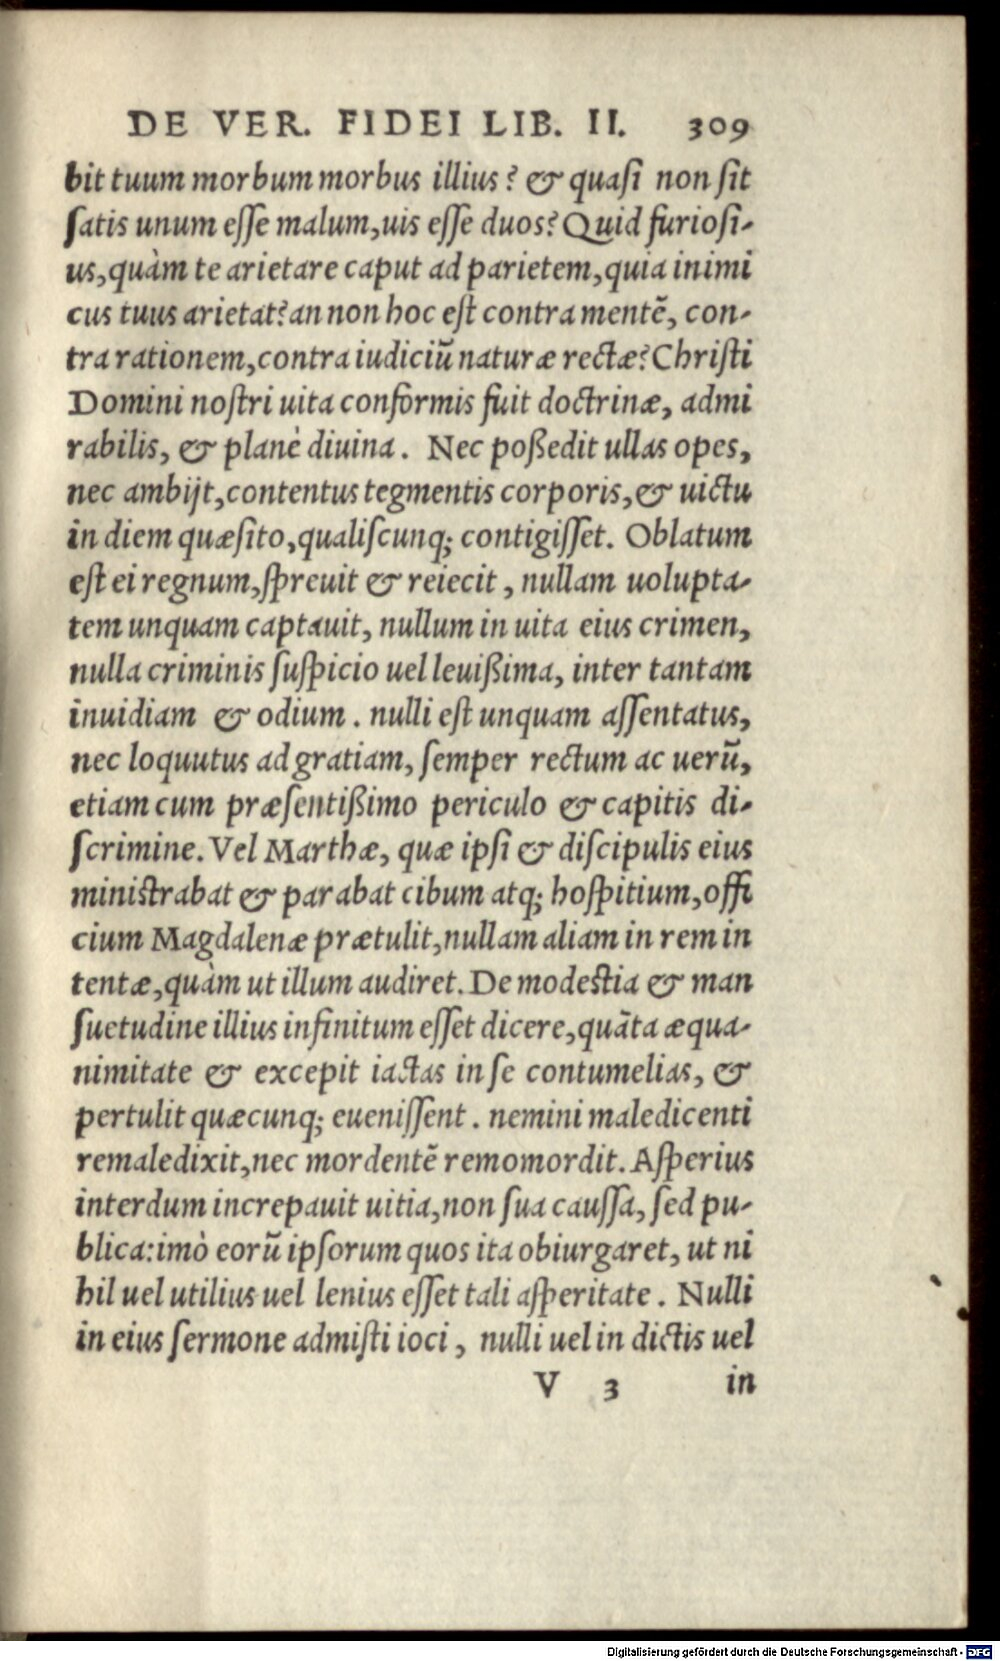 DE VER. FIDEI LIB. II. 309
bit tuum morbum morbus illius? & quasi non sit
ſatis unum eſſe malum, uis eſſe duos? Quid furioſi-
us, quàm te arietare caput ad parietem, quia inimi
cus tuus arietat? an non hoc eſt contra mentē, con-
tra rationem, contra iudiciū naturæ rectæ? Chriſti
Domini noſtri uita conformis fuit doctrinæ, admi
rabilis, & planè diuina. Nec poßedit ullas opes,
nec ambijt, contentus tegmentis corporis, & uictu
in diem quæſito, qualiſcunq; contigiſſet. Oblatum
eſt ei regnum, ſpreuit & reiecit, nullam uolupta-
tem unquam captauit, nullum in uita eius crimen,
nulla criminis ſuſpicio uel leuißima, inter tantam
inuidiam & odium. nulli eſt unquam aſſentatus,
nec loquutus ad gratiam, ſemper rectum ac uerū,
etiam cum præſentißimo periculo & capitis di-
ſcrimine. Vel Marthæ, quæ ipſi & diſcipulis eius
miniſtrabat & parabat cibum atq; hoſpitium, offi
cium Magdalenæ prætulit, nullam aliam in rem in
tentæ, quàm ut illum audiret. De modeſtia & man
ſuetudine illius infinitum eſſet dicere, quāta æqua-
nimitate & excepit iactas in ſe contumelias, &
pertulit quæcunq; eueniſſent. nemini maledicenti
remaledixit, nec mordentē remomordit. Aſperius
interdum increpauit uitia, non ſua cauſſa, ſed pu-
blica: imò eorū ipſorum quos ita obiurgaret, ut ni
hil uel utilius uel lenius eſſet tali aſperitate. Nulli
in eius ſermone admiſti ioci, nulli uel in dictis uel
V 3 in
Digitalisierung gefördert durch die Deutsche Forschungsgemeinschaft - DFG